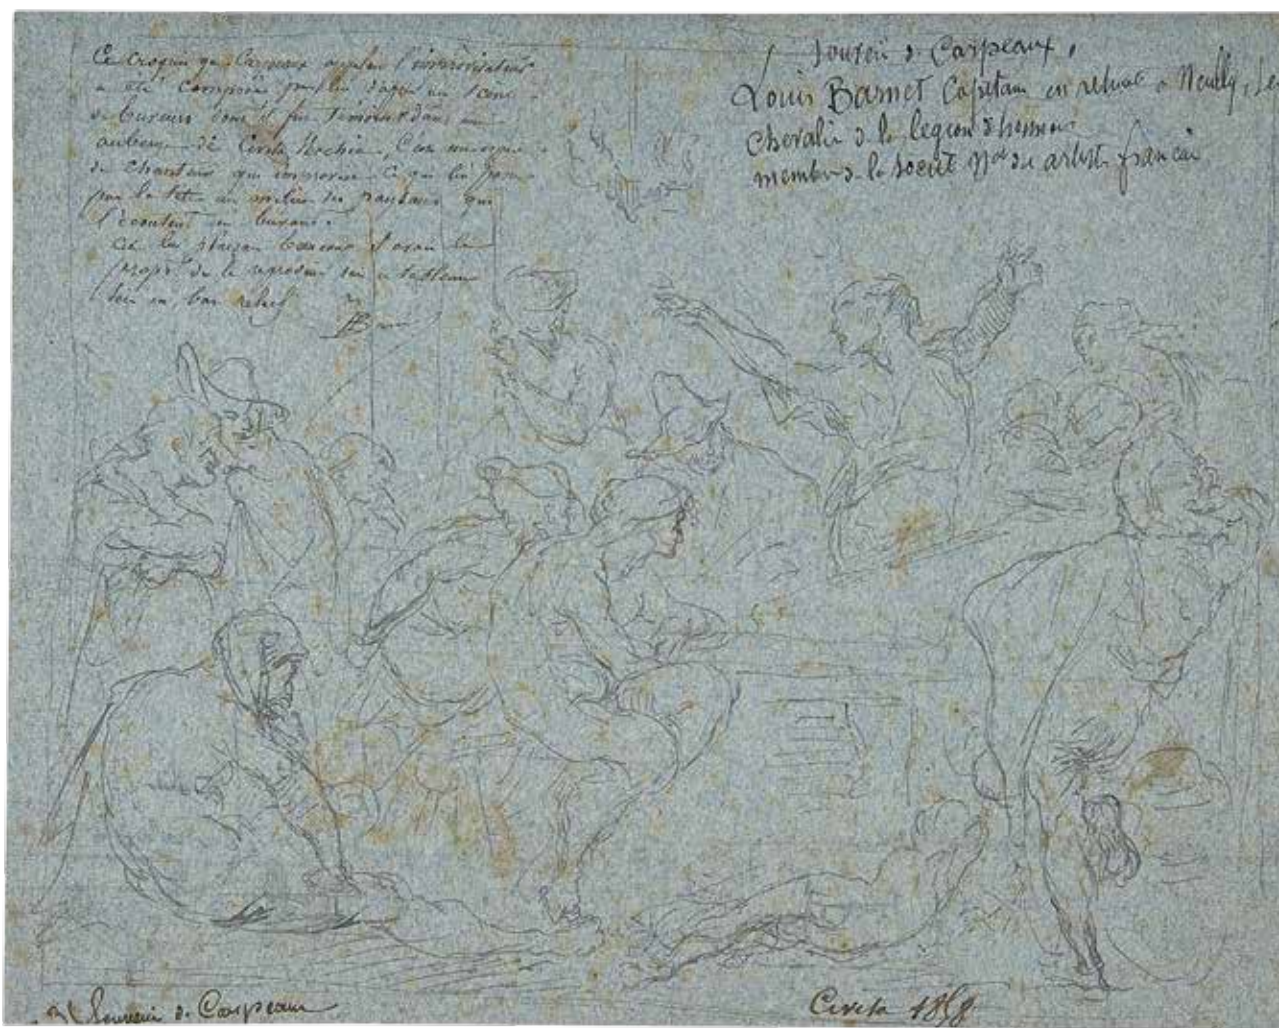 Ce croquis que Carpeaux appelait l'improvisateur
a été composé par lui d'après une scène
de buveurs dont il fut témoin dans une
auberge de Civita Vechia, C'est une espèce
de chanteur qui improvise ce qui lui passe
par la tête au milieu des paysans qui
l'écoutent en buvant.
Cela lui plaisait beaucoup il avait le
projet de le reproduire soit en tableau
soit en bas relief
Souvenir de Carpeaux,
Louis Barnet Capitaine en retraite à Neuilly,
Chevalier de la légion d'honneur
membre de la société des artistes français
Souvenir de Carpeaux
Civita 1858